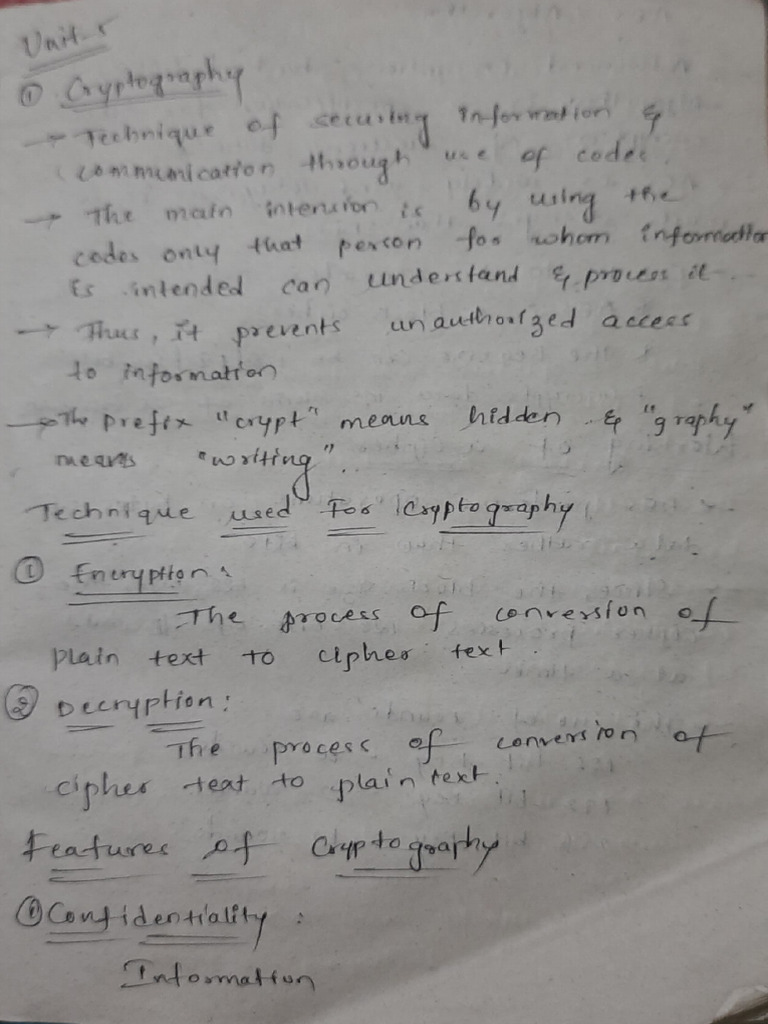 Unit-5
① Cryptography
→ Technique of securing information &
communication through use of codes.
→ The main intension is by using the
codes only that person for whom information
is intended can understand & process it.
→ Thus, it prevents unauthorized access
to information
→ The prefix "crypt" means hidden & "graphy"
means "writing".
Technique used For Cryptography
① Encryption:
The process of conversion of
plain text to cipher text.
② Decryption:
The process of conversion of
cipher text to plain text.
Features of Cryptography
① Confidentiality:
Information